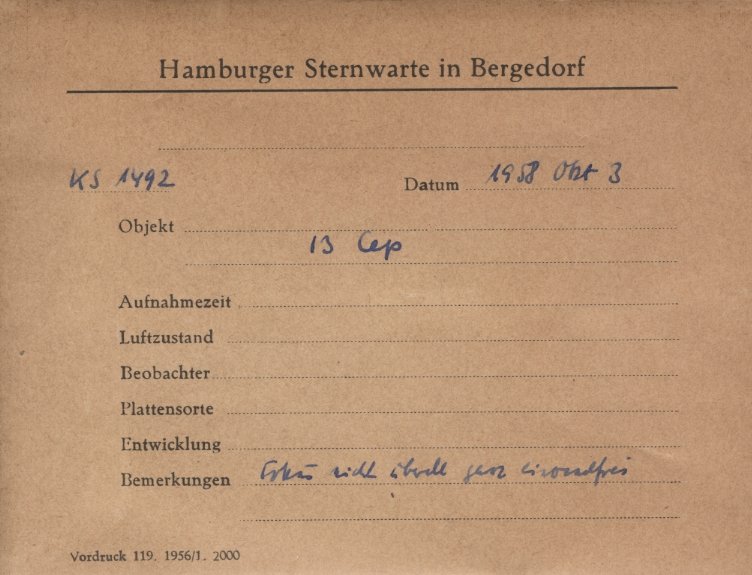 Hamburger Sternwarte in Bergedorf
KS 1492 Datum 1958 Okt 3
Objekt
13 Cep
Aufnahmezeit
Luftzustand
Beobachter
Plattensorte
Entwicklung
Bemerkungen Fokus nicht überall ganz einwandfrei
Vordruck 119. 1956/1. 2000